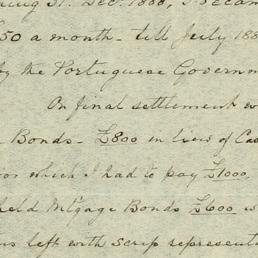 31. Dec. 1888, I
50 a month - till July 188
by the Portuguese Governm
On final settlement w
Bonds - £800 in lieu of Cas
or which I had to pay £1000,
held Mtgage Bonds £600 w
us left with scrip represent